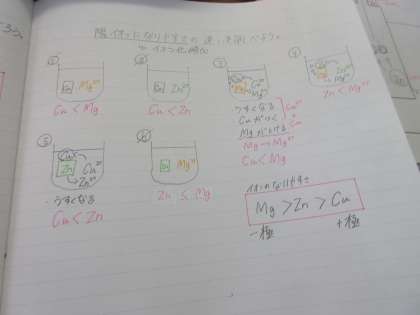 陽イオンになりやすさの違いを調べよう。
→イオン化傾向
①
Cu Mg²⁺
Cu < Mg
②
Cu Zn²⁺
Cu < Zn
③
Cu
Mg Cu²⁺
Mg²⁺
うすくなる
Cuがつく
Mgがとける
Cu²⁺
↓
Cu
Mg→Mg²⁺
Cu < Mg
④
Zn < Mg
⑤
Cu
Zn Cu²⁺
→Zn²⁺
うすくなる
Cu < Zn
⑥
Zn Mg²⁺
Zn < Mg
イオンになりやすさ
Mg > Zn > Cu
−極 +極